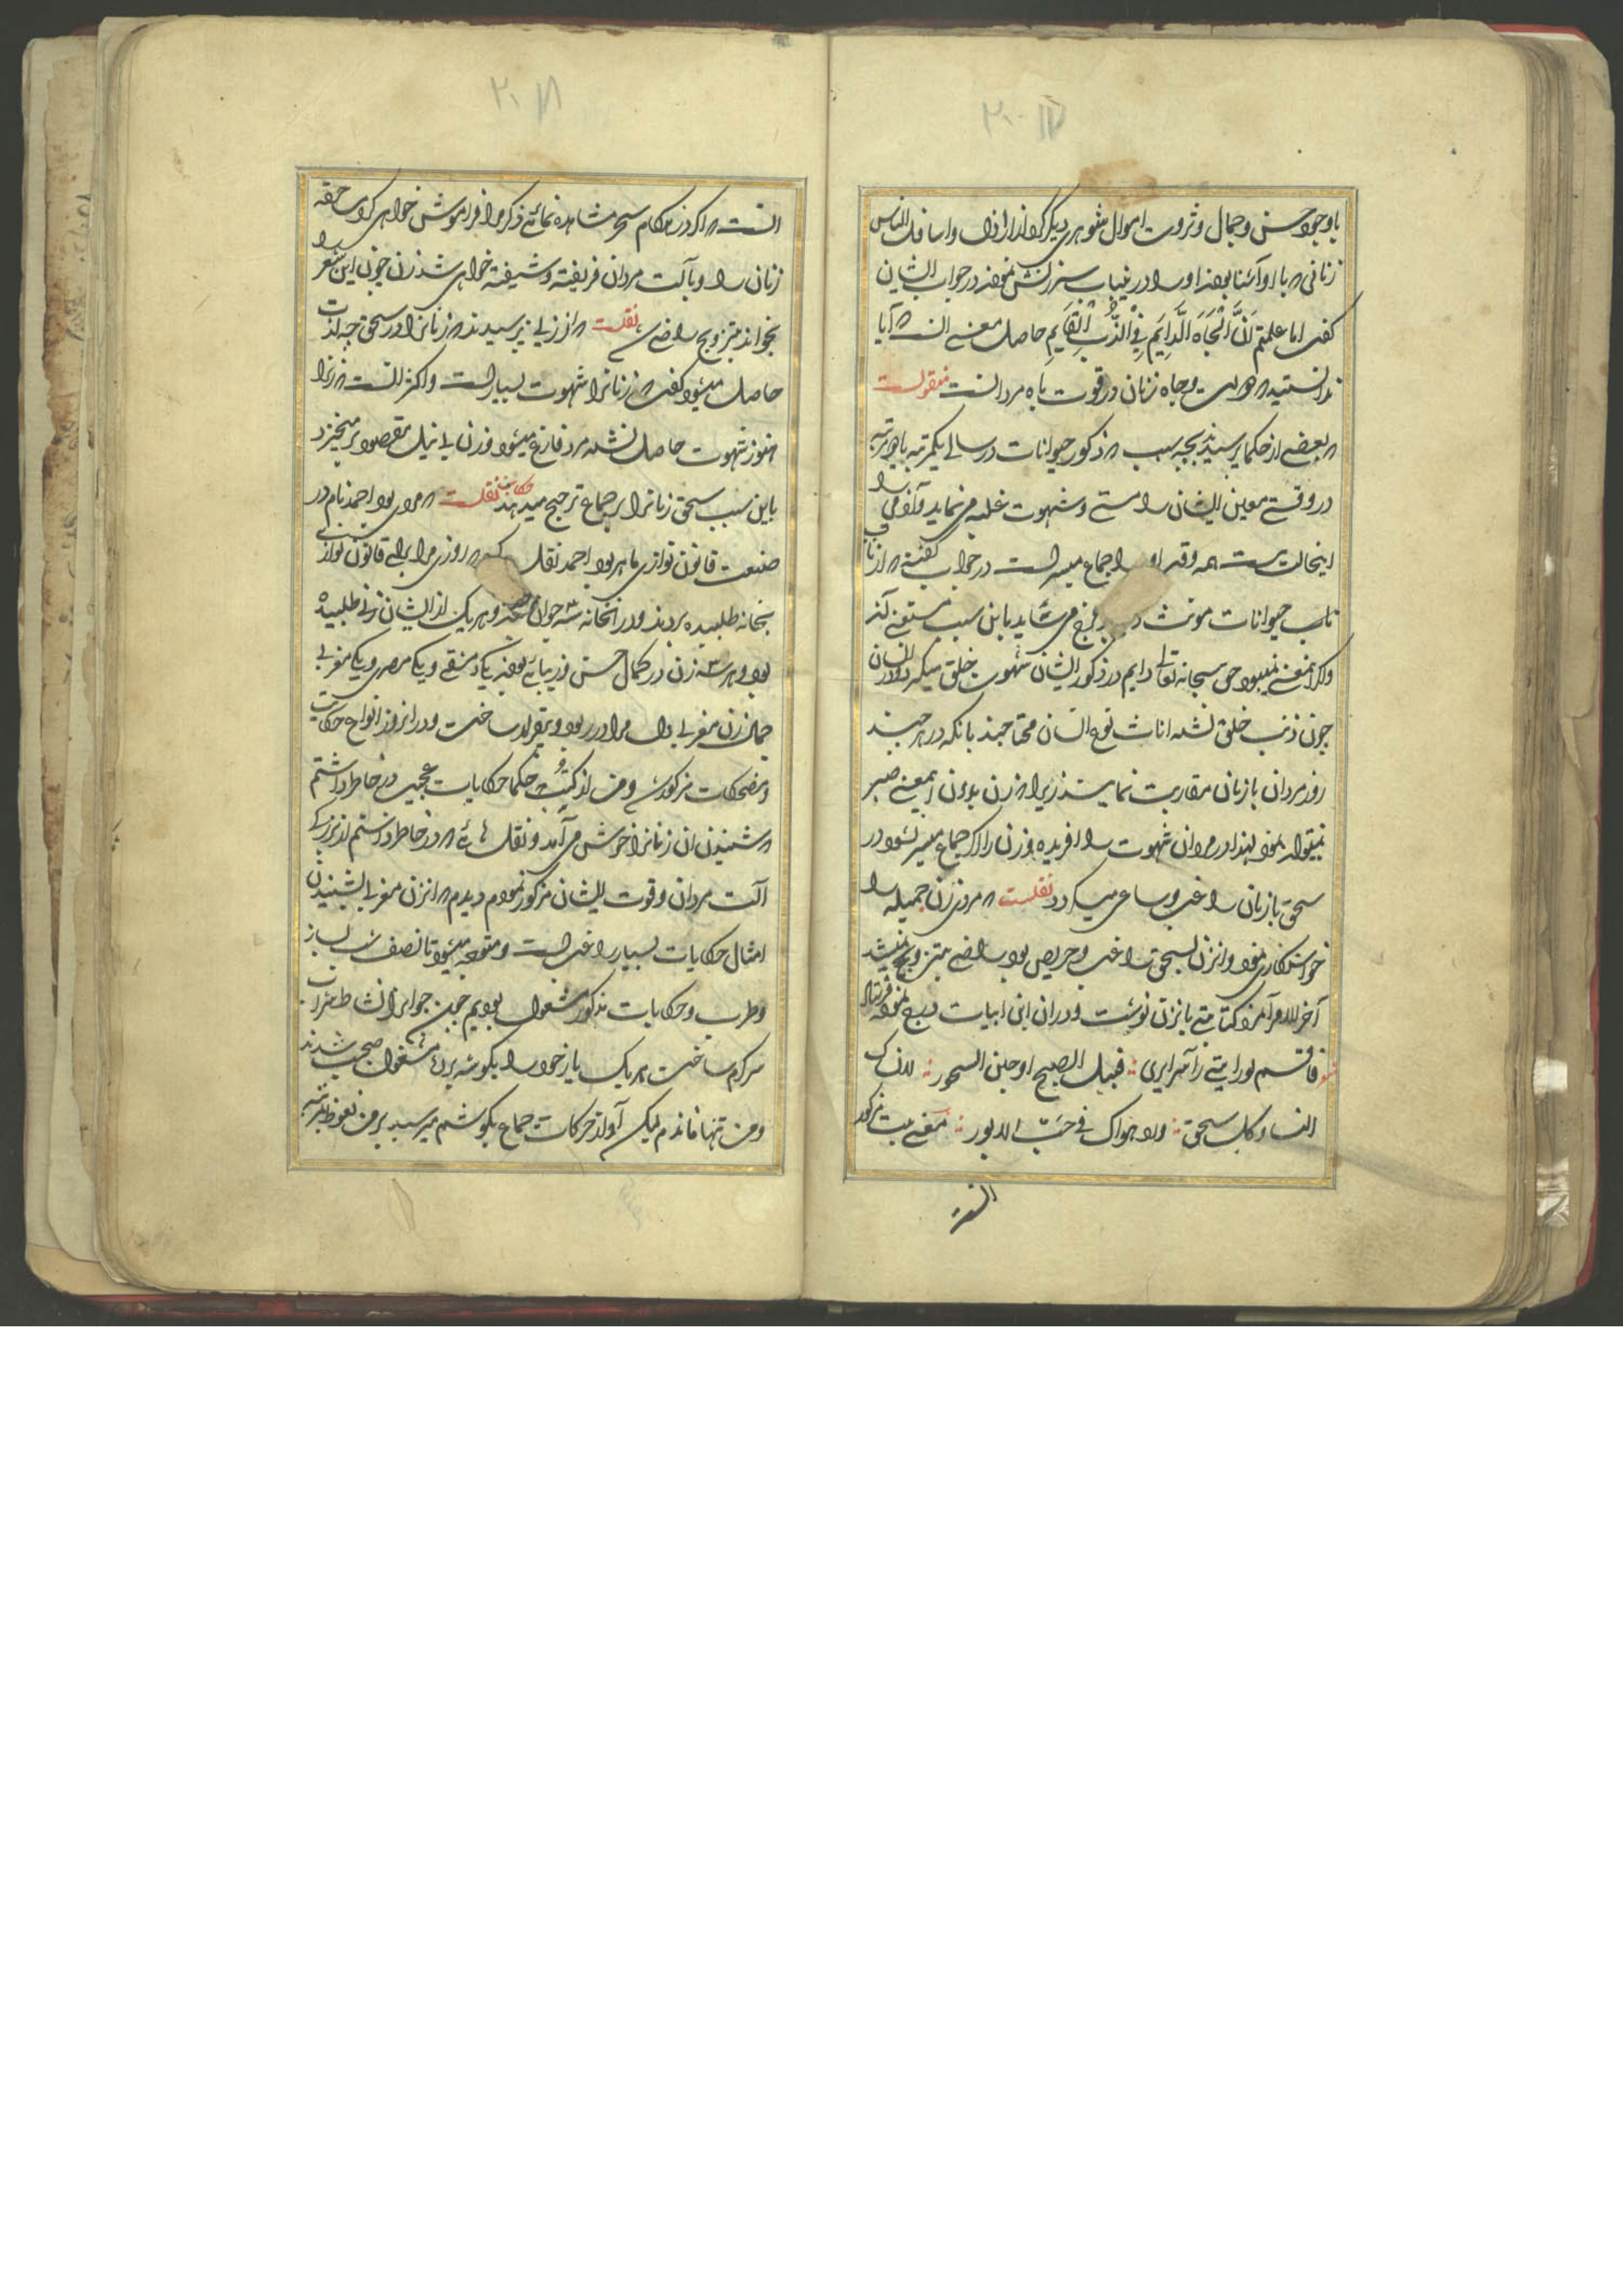 باوجود حسن و جمال و ثروت اموال شوهری دیگر کرد از اراذل و اسافل الناس
زنانی که با او آشنا بودند او را در غیاب سرزنش نمودند در جواب ایشان
گفت اما علمتم ان الجاه الدایم فی الذب القایم حاصل معنی انست که آیا
ندانستید که عزت و جاه زنان در قوت باه مردانست منقولست
که بعضی از حکما پرسیدند بچه سبب که ذکور حیوانات در سالی یکمرتبه یا دو مرتبه
در وقتی معین ایشان را مستی و شهوت غلبه می نماید و آدمی را
اینحالت نیست همه وقت او را جماع میسر است در جواب گفتند که از
حیوانات مونث فرج می باید باین سبب
سبحانه تعالی دایم در ذکور ایشان شهوت خلق میکرد
چون ذنب خلق نشده اناث نوع انسان محتاجند بانکه در هر چند
روز مردان با زنان مقاربت نمایند زیرا که زن بدون اینمعنی صبر
نمیتواند نمود لهذا در مردان شهوت را افریده و زن را اگر جماع میسر نشود در
سحق با زنان راغب و ساعی میگردد نقلست که مردی زن جمیله را
خواستکاری نمود و انزن بسحق راغب و حریص بود راضی بتزویج نمیشد
آخر الامر آنمرد کتابتی بانزن نوشت و در ان این ابیات درج نموده فرستاد
شعر فاقسم لو رایتی رآسرایری قبیل الصبح او حین السحور لانساک
النسا و کل سحق ولا هواک فی حب الایور معنی بیت مذکور
انست که
انست که اگر در هنکام سحر مشاهده نمائی ذکر مرا فراموش خواهی کرد ساحقه
زنان را و بآلت مردان فریفته و شیفته خواهی شد زن چون این شعر را
بخواند بتزویج راضی شد نقلست که از زنی پرسیدند که زنانرا در سحق چه لذت
حاصل میشود گفت که زنانرا شهوت بسیار است و اکثر انست که زنرا
هنوز شهوت حاصل نشده مرد فارغ میشود و زن بی نیل مقصود بر میخیزد
باین سبب سحق زنانرا بر جماع ترجیح میدهند حکایت نقلست که مردی بود احمد نام در
صنعت قانون نوازی ماهر بود احمد نقل کند که روزی مرا برای قانون نوازی
بخانه طلبیده بردند و در انخانه سه جوان بودند و هر یک از ایشان زنی طلبیده
بود و هر سه زن در کمال حسن و زیبائی بودند یکی دمشقی و یکی مصری و یکی مغربی
جمال زن مغربی دل مرا در ربود و بیقرار ساخت و در انروز انواع حکایت
و مضحکات مذکور شد و من از کتب حکما حکایات عجیب در خاطر داشتم
که شنیدن ان زنانرا خوش می آمد و نقل هائی که در خاطر داشتم از بزرکی
آلت مردان و قوت ایشان مذکور نمودم دیدم که انزن مغربی بشنیدن
امثال حکایات بسیار راغب است و متوجه میشود تا نصف شب بساز
و طرب و حکایات مذکور مشغول بودیم چون جوانرا نشاط شراب
سرکرم ساخت هر یک یار خود را بکوشه برده مشغول صحبت شدند
و من تنها ماندم لیکن آواز حرکات جماع بکوشم میرسید بر من نعوظ بمرتبه